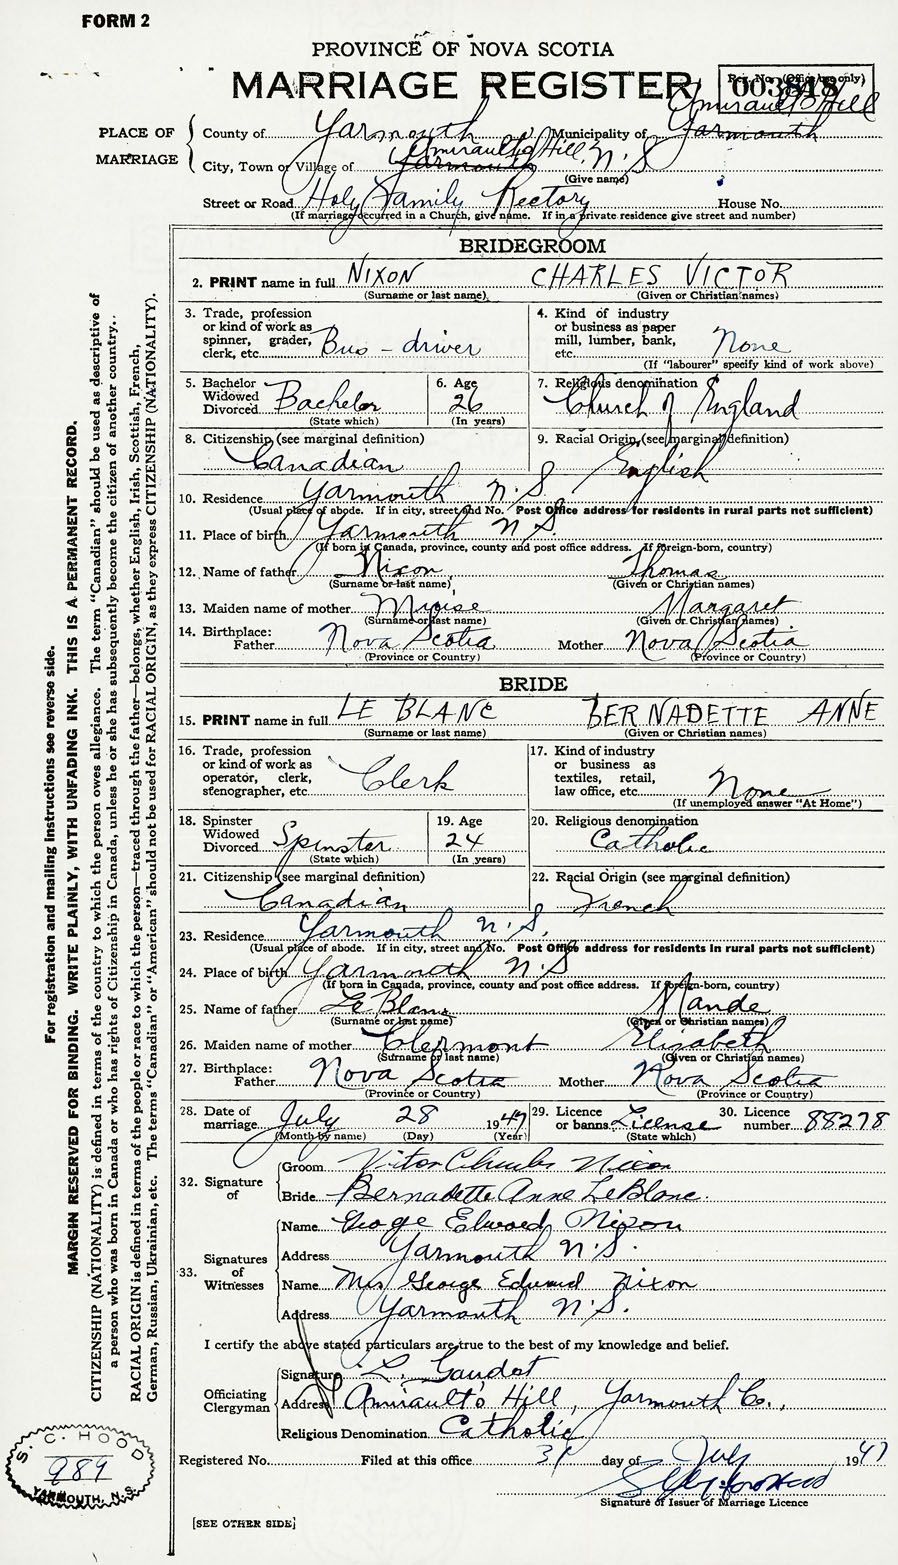 FORM 2
PROVINCE OF NOVA SCOTIA
MARRIAGE REGISTER
Reg. No. (Office use only)
003818
PLACE OF MARRIAGE
County of Yarmouth Municipality of Yarmouth Amirault's Hill
City, Town or Village of Yarmouth Amirault's Hill, N.S
(Give name)
Street or Road Holy Family Rectory House No.
(If marriage occurred in a Church, give name. If in a private residence give street and number)
BRIDEGROOM
2. PRINT name in full NIXON CHARLES VICTOR
(Surname or last name) (Given or Christian names)
3. Trade, profession or kind of work as spinner, grader, clerk, etc. Bus-driver
4. Kind of industry or business as paper mill, lumber, bank, etc. None
(If "labourer" specify kind of work above)
5. Bachelor Widowed Divorced Bachelor
(State which)
6. Age 26
(In years)
7. Religious denomination Church of England
8. Citizenship (see marginal definition) Canadian
9. Racial Origin (see marginal definition) English
10. Residence Yarmouth N.S.
(Usual place of abode. If in city, street and No. Post Office address for residents in rural parts not sufficient)
11. Place of birth Yarmouth N.S.
(If born in Canada, province, county and post office address. If foreign-born, country)
12. Name of father Nixon Thomas
(Surname or last name) (Given or Christian names)
13. Maiden name of mother Muise Margaret
(Surname or last name) (Given or Christian names)
14. Birthplace:
Father Nova Scotia Mother Nova Scotia
(Province or Country) (Province or Country)
BRIDE
15. PRINT name in full LE BLANC BERNADETTE ANNE
(Surname or last name) (Given or Christian names)
16. Trade, profession or kind of work as operator, clerk, stenographer, etc. Clerk
17. Kind of industry or business as textiles, retail, law office, etc. None
(If unemployed answer "At Home")
18. Spinster Widowed Divorced Spinster
(State which)
19. Age 24
(In years)
20. Religious denomination Catholic
21. Citizenship (see marginal definition) Canadian
22. Racial Origin (see marginal definition) French
23. Residence Yarmouth N.S.
(Usual place of abode. If in city, street and No. Post Office address for residents in rural parts not sufficient)
24. Place of birth Yarmouth N.S
(If born in Canada, province, county and post office address. If foreign-born, country)
25. Name of father Le Blanc Mande
(Surname or last name) (Given or Christian names)
26. Maiden name of mother Clermont Elizabeth
(Surname or last name) (Given or Christian names)
27. Birthplace:
Father Nova Scotia Mother Nova Scotia
(Province or Country) (Province or Country)
28. Date of marriage July 28 1947
(Month by name) (Day) (Year)
29. Licence or banns License
(State which)
30. Licence number 88278
32. Signature of
Groom Victor Charles Nixon
Bride Bernadette Anne LeBlanc.
33. Signatures of Witnesses
Name George Edward Nixon
Address Yarmouth N.S.
Name Mrs George Edward Nixon
Address Yarmouth N.S.
I certify the above stated particulars are true to the best of my knowledge and belief.
Officiating Clergyman
Signature L. Gaudet
Address Amirault's Hill, Yarmouth Co.,
Religious Denomination Catholic
Registered No. Filed at this office 31 day of July 1947
Signature of Issuer of Marriage Licence
[SEE OTHER SIDE]
S. C. HOOD
989
YARMOUTH, N.S.
For registration and mailing instructions see reverse side.
MARGIN RESERVED FOR BINDING. WRITE PLAINLY, WITH UNFADING INK. THIS IS A PERMANENT RECORD.
CITIZENSHIP (NATIONALITY) is defined in terms of the country to which the person owes allegiance. The term "Canadian" should be used as descriptive of
a person who was born in Canada or who has rights of Citizenship in Canada, unless he or she has subsequently become the citizen of another country.
RACIAL ORIGIN is defined in terms of the people or race to which the person—traced through the father—belongs, whether English, Irish, Scottish, French,
German, Russian, Ukrainian, etc. The terms "Canadian" or "American" should not be used for RACIAL ORIGIN, as they express CITIZENSHIP (NATIONALITY).